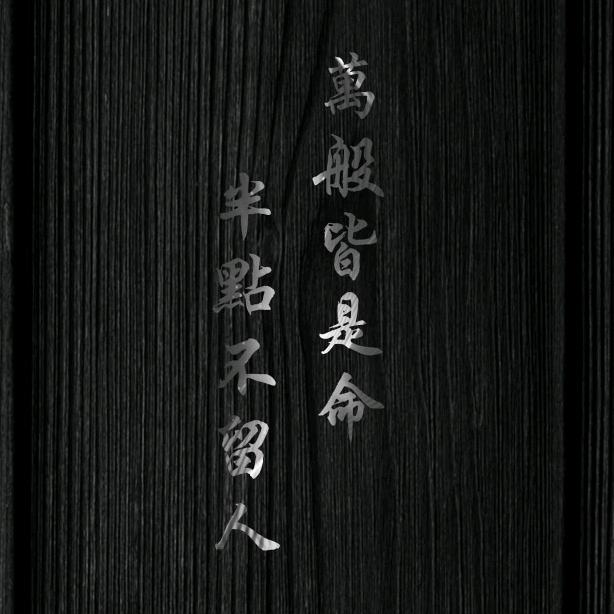 萬般皆是命
半點不留人